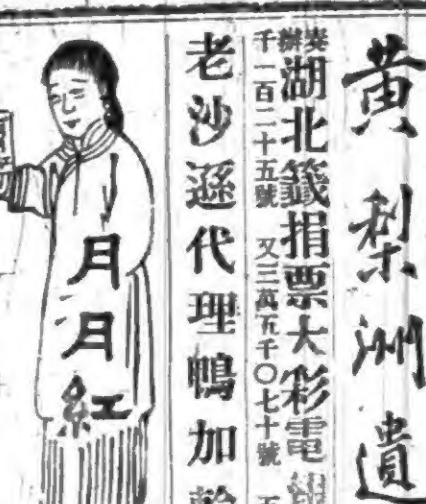 黄梨洲遺
奏辦湖北籤捐票大彩電
千一百二十五號 又三萬五千〇七十號
老沙遜代理鴨加
月月紅